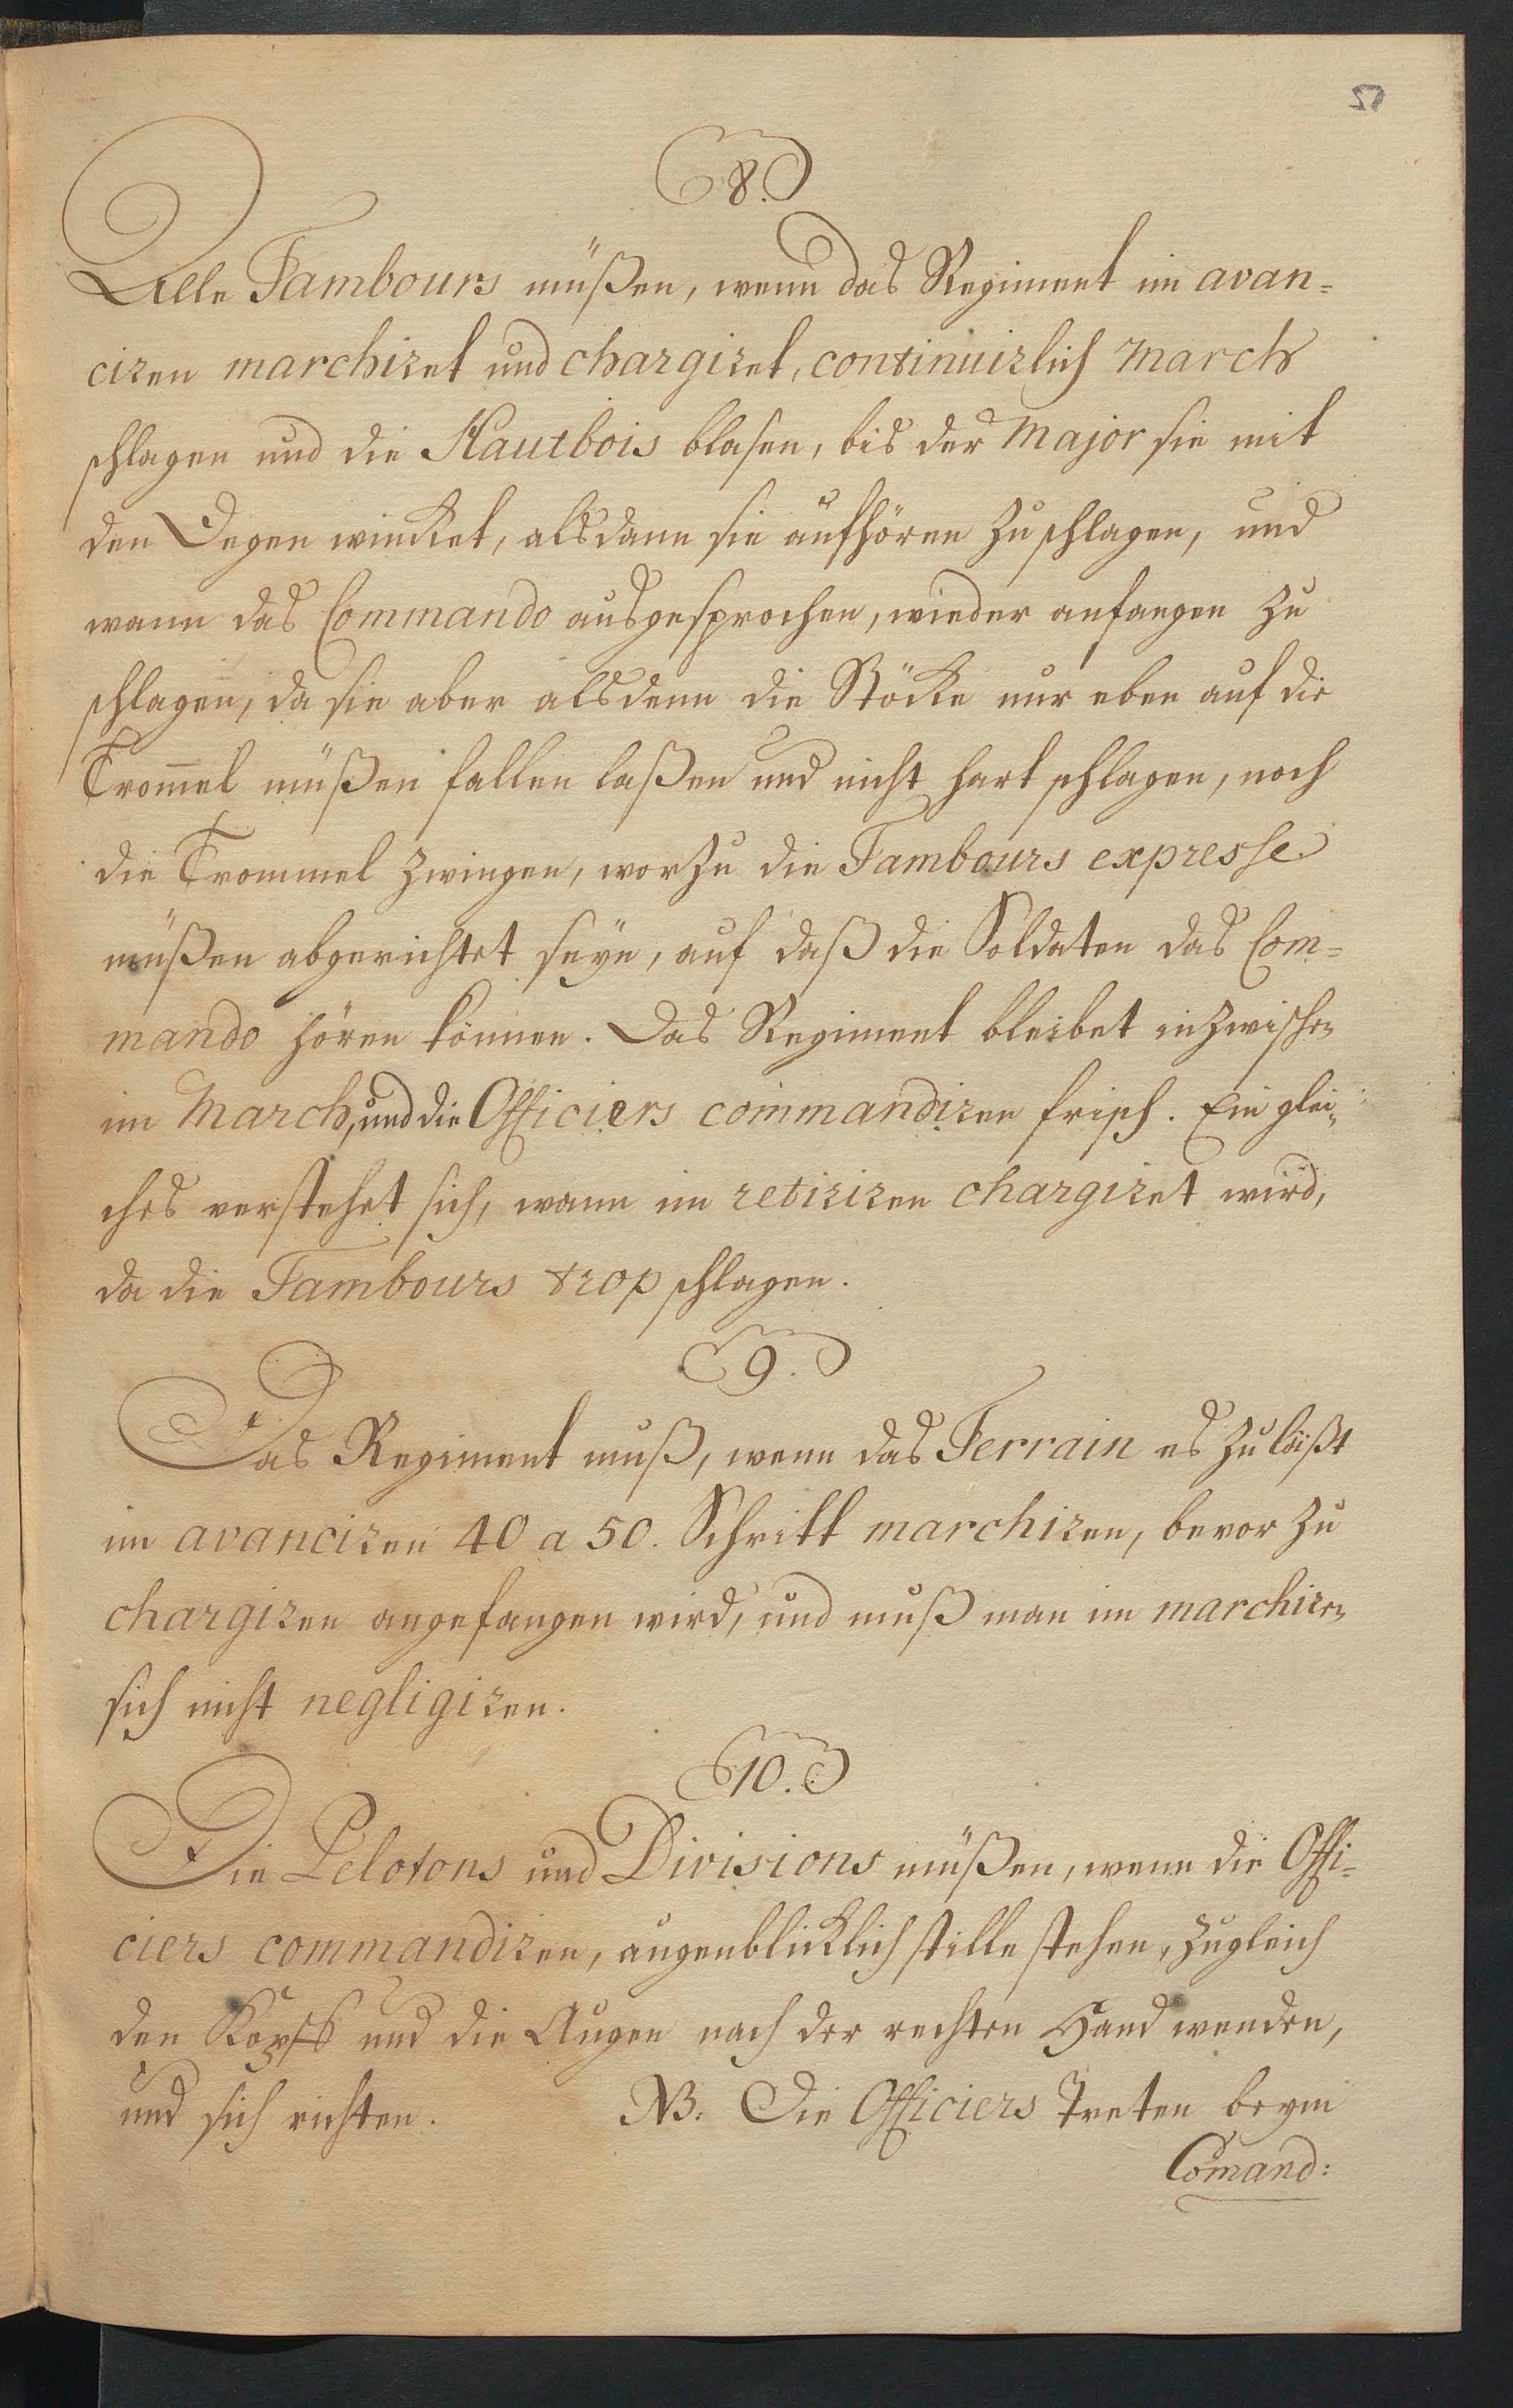 8.
Alle Tambours müßen, wenn das Regiment im avan=
ciren marchiret und chargiret, continuirlich March
schlagen und die Hautbois blasen, bis der Major sie mit
den Degen wincket, alsdann sie aufhören zu schlagen, und
wann das Commando ausgesprochen, wieder anfangen zu
schlagen, da sie aber alsdenn die Stöcke nur eben auf die
Trom̄el müßen fallen laßen und nicht hart schlagen, noch
die Trommel zwingen, worzu die Tambours expresse
müßen abgerichtet seyn, auf daß die Soldaten das Com=
mando hören können. Das Regiment bleibet inzwischen
im March, und die Officiers commandiren frisch. Ein glei=
ches verstehet sich, wann im retiriren chargiret wird,
da die Tambours trop schlagen.
9.
Das Regiment muß, wenn das Terrain es zuläßt
im avanciren 40 a 50. Schritt marchiren, bevor zu
chargiren angefangen wird, und muß man im marchiren
sich nicht negligiren.
10.
Die Pelotons und Divisions müßen, wenn die Offi=
ciers commandiren, augenblicklich stille stehen, zugleich
den Kopff und die Augen nach der rechten Hand wenden,
und sich richten. NB. Die Officiers treten beym
Com̄and: